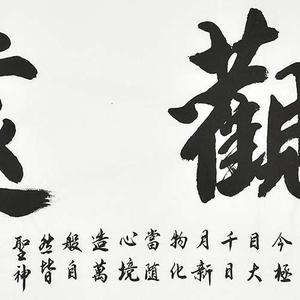 觀
今極
目大
千日
月新
物化
當随
心境
造萬
般自
然皆
聖神